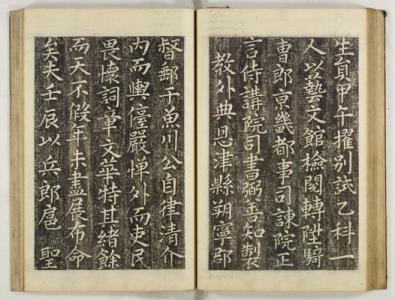 生員甲午擢別試乙科一
人以藝文館檢閱轉陞騎
曹郎京畿都事司諫院正
言侍講院司書弼善知製
教外典恩津縣朔寧郡
督郵于魚川公自律清介
內而輿儓嚴憚外而吏民
畏懷詞華文華特其緒餘
而天不假年未盡展布命
矣夫壬辰以兵郎扈 聖